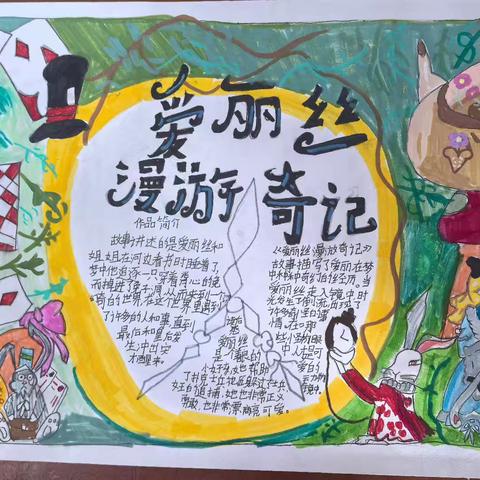 爱丽丝
漫游奇记
作品简介
故事讲述的是爱丽丝和
姐姐在河边看书时睡着了,
梦中他追逐一只穿着背心的兔
而掉进了兔子洞,从而来到一个
奇的世界,在这个世界里遇到
了许多的人和事,直到
最后和皇后发
生冲突
才醒来。
爱丽丝
是个
个好孩,她帮助
了扑克士兵
好的追捕,她也非常正义
勇敢,也非常漂亮可爱。
《爱丽丝漫游奇记》
故事描写了爱丽在梦
中
爱丽丝走入镜中,时
光发生了倒流,出现了
许多奇
情。在那
些小
中人